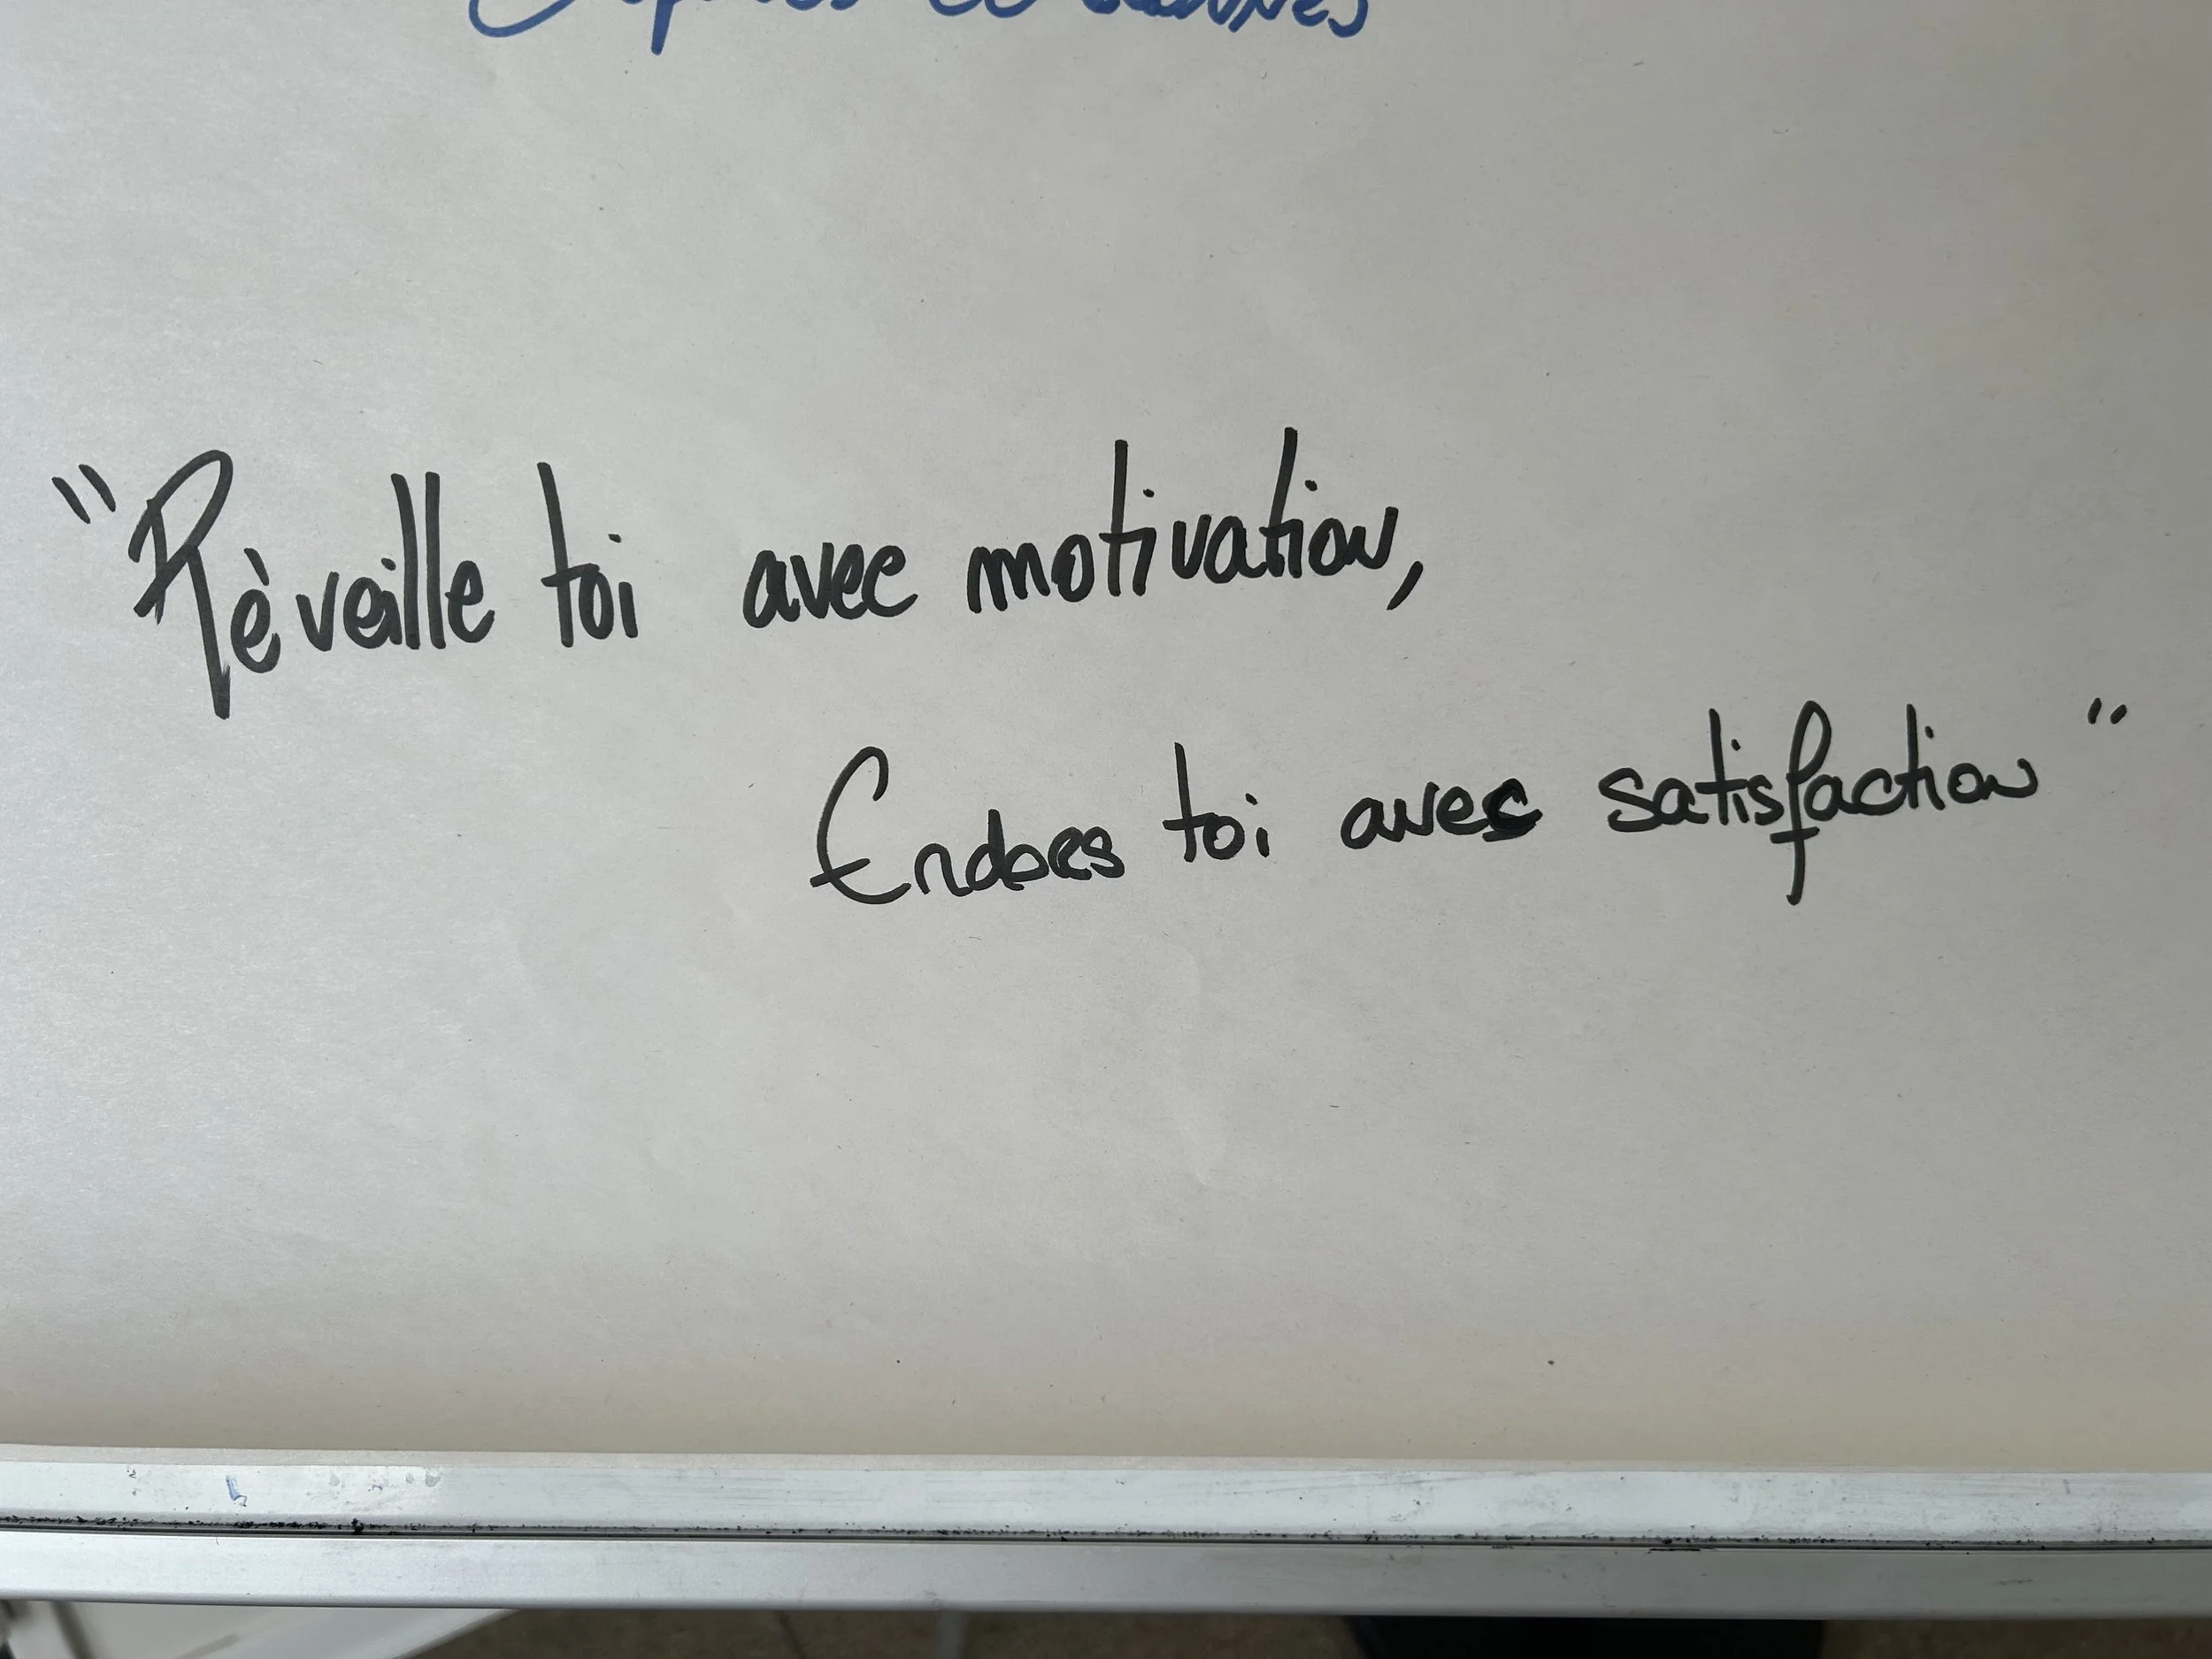 "Rèveille toi avec motivation,
Endors toi avec satisfaction"